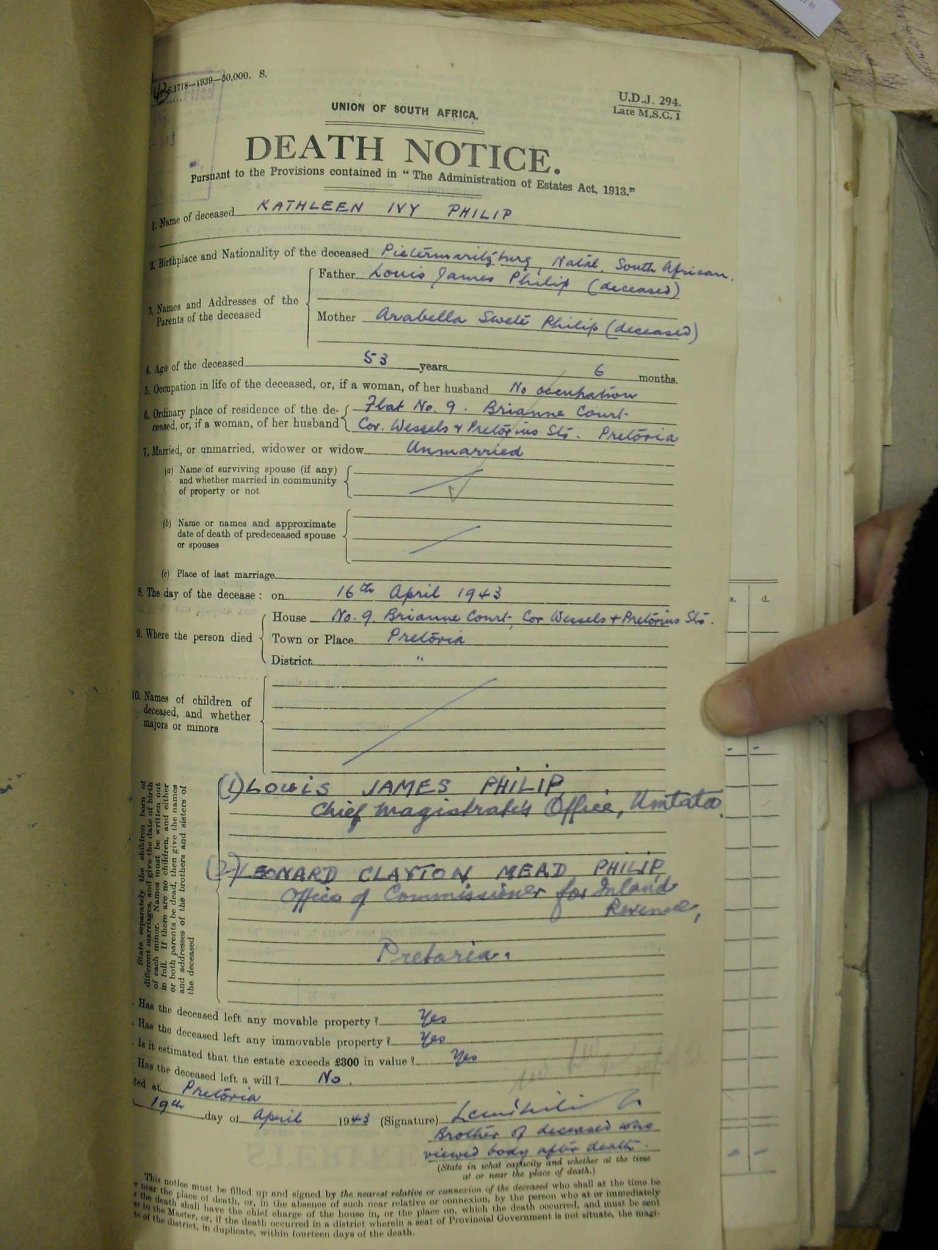 S.1718—1939—50,000. S.
U.D.J. 294.
Late M.S.C. 1
UNION OF SOUTH AFRICA.
DEATH NOTICE.
Pursuant to the Provisions contained in "The Administration of Estates Act, 1913."
1. Name of deceased KATHLEEN IVY PHILIP
2. Birthplace and Nationality of the deceased Pietermaritzburg, Natal. South African.
3. Names and Addresses of the Parents of the deceased
Father Louis James Philip (deceased)
Mother Arabella Swete Philip (deceased)
4. Age of the deceased 53 years 6 months.
5. Occupation in life of the deceased, or, if a woman, of her husband No occupation
6. Ordinary place of residence of the de- Flat No. 9. Brianne Court
ceased, or, if a woman, of her husband Cor. Wessels & Pretorius Sts. Pretoria
7. Married, or unmarried, widower or widow Unmarried
(a) Name of surviving spouse (if any)
and whether married in community
of property or not
(b) Name or names and approximate
date of death of predeceased spouse
or spouses
(c) Place of last marriage
8. The day of the decease: on 16th April 1943
9. Where the person died
House No. 9. Brianne Court, Cor Wessels & Pretorius Sts.
Town or Place Pretoria
District "
10. Names of children of
deceased, and whether
majors or minors
State separately the children born of
different marriages, and give the date of birth
of each minor. Names must be written out
in full. If there are no children, and either
or both parents be dead, then give the names
and addresses of the brothers and sisters of
the deceased
(1) LOUIS JAMES PHILIP,
Chief Magistrate's Office, Umtata.
(2) LEONARD CLAYTON MEAD PHILIP,
Office of Commissioner for Inland
Revenue,
Pretoria.
Has the deceased left any movable property? Yes
Has the deceased left any immovable property? Yes
Is it estimated that the estate exceeds £300 in value? Yes
Has the deceased left a will? No.
ted at Pretoria
19th day of April 1943 (Signature)
Brother of deceased who
viewed body after death.
(State in what capacity and whether at the time
at or near the place of death.)
This notice must be filled up and signed by the nearest relative or connexion of the deceased who shall at the time be
near the place of death, or, in the absence of such near relative or connexion, by the person who at or immediately
the death shall have the chief charge of the house in, or the place on, which the death occurred, and must be sent
to the Master, or, if the death occurred in a district wherein a seat of Provincial Government is not situate, the magi-
of the district, in duplicate, within fourteen days of the death.
s. d.